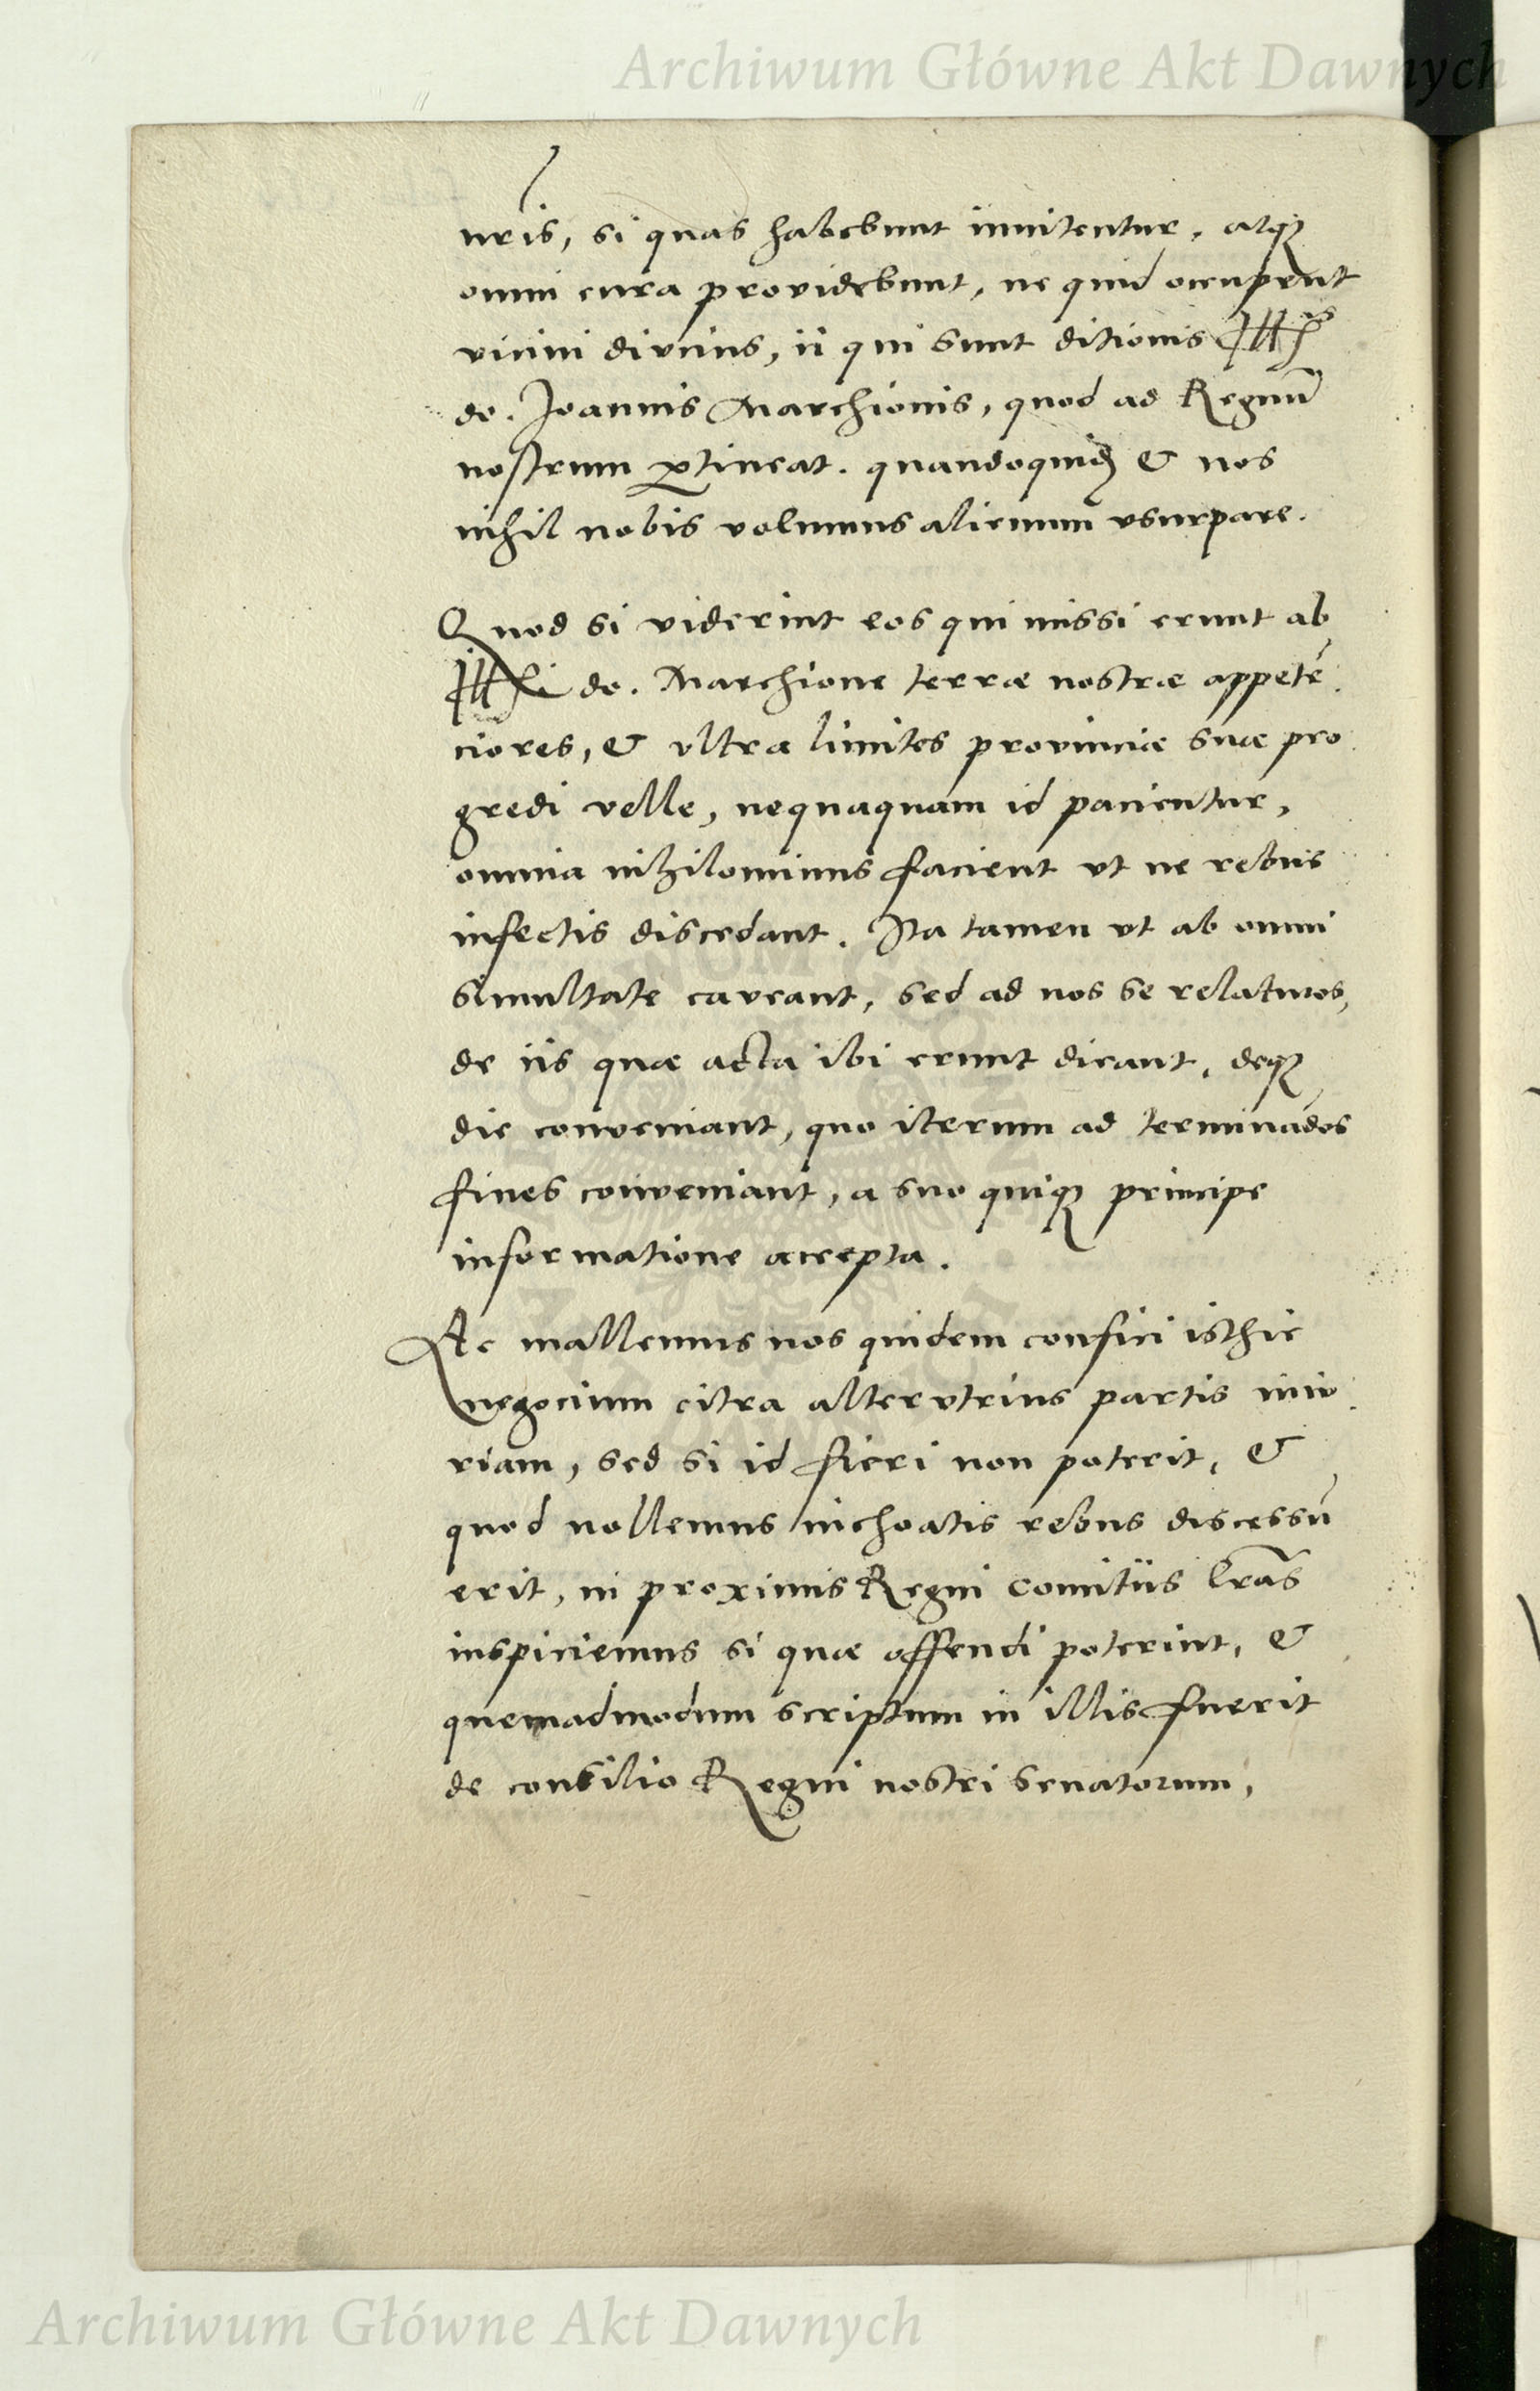 Archiwum Główne Akt Dawnych
uris, si quas habebunt innitentur, atq₃
omni cura providebunt, ne quid occupent
vicini divcius, ii qui sunt ditionis Ill^ris
do. Joannis Marchionis, quod ad Regnū
nostrum ꝑtineat. quandoquidē & nos
nihil nobis volumus alienum vsurpare.
Quod si viderint eos qui missi erunt ab
Illri do. Marchione terræ nostræ appetē
ciores, & vltra limites provinciæ suæ pro
gredi velle, nequaquam id pacientur,
omnia nihilominus facient vt ne rebus
infectis discedant. Ita tamen vt ab omni
simultate caveant, sed ad nos se relaturos,
de iis quæ acta ibi erunt dicant, deq₃
die conveniant, quo iterum ad terminādos
fines conveniant, a suo quiq₃ principe
informatione accepta.
Ac mallemus nos quidem confici isthic
negocium citra altervtrius partis iniu
riam, sed si id fieri non poterit, &
quod nollemus inchoatis rebus discessū
erit, in proximis Regni comitiis lrās
inspiciemus si quæ offendi poterint, &
quemadmodum scriptum in illis fuerit
de consilio Regni nostri senatorum,
Archiwum Główne Akt Dawnych